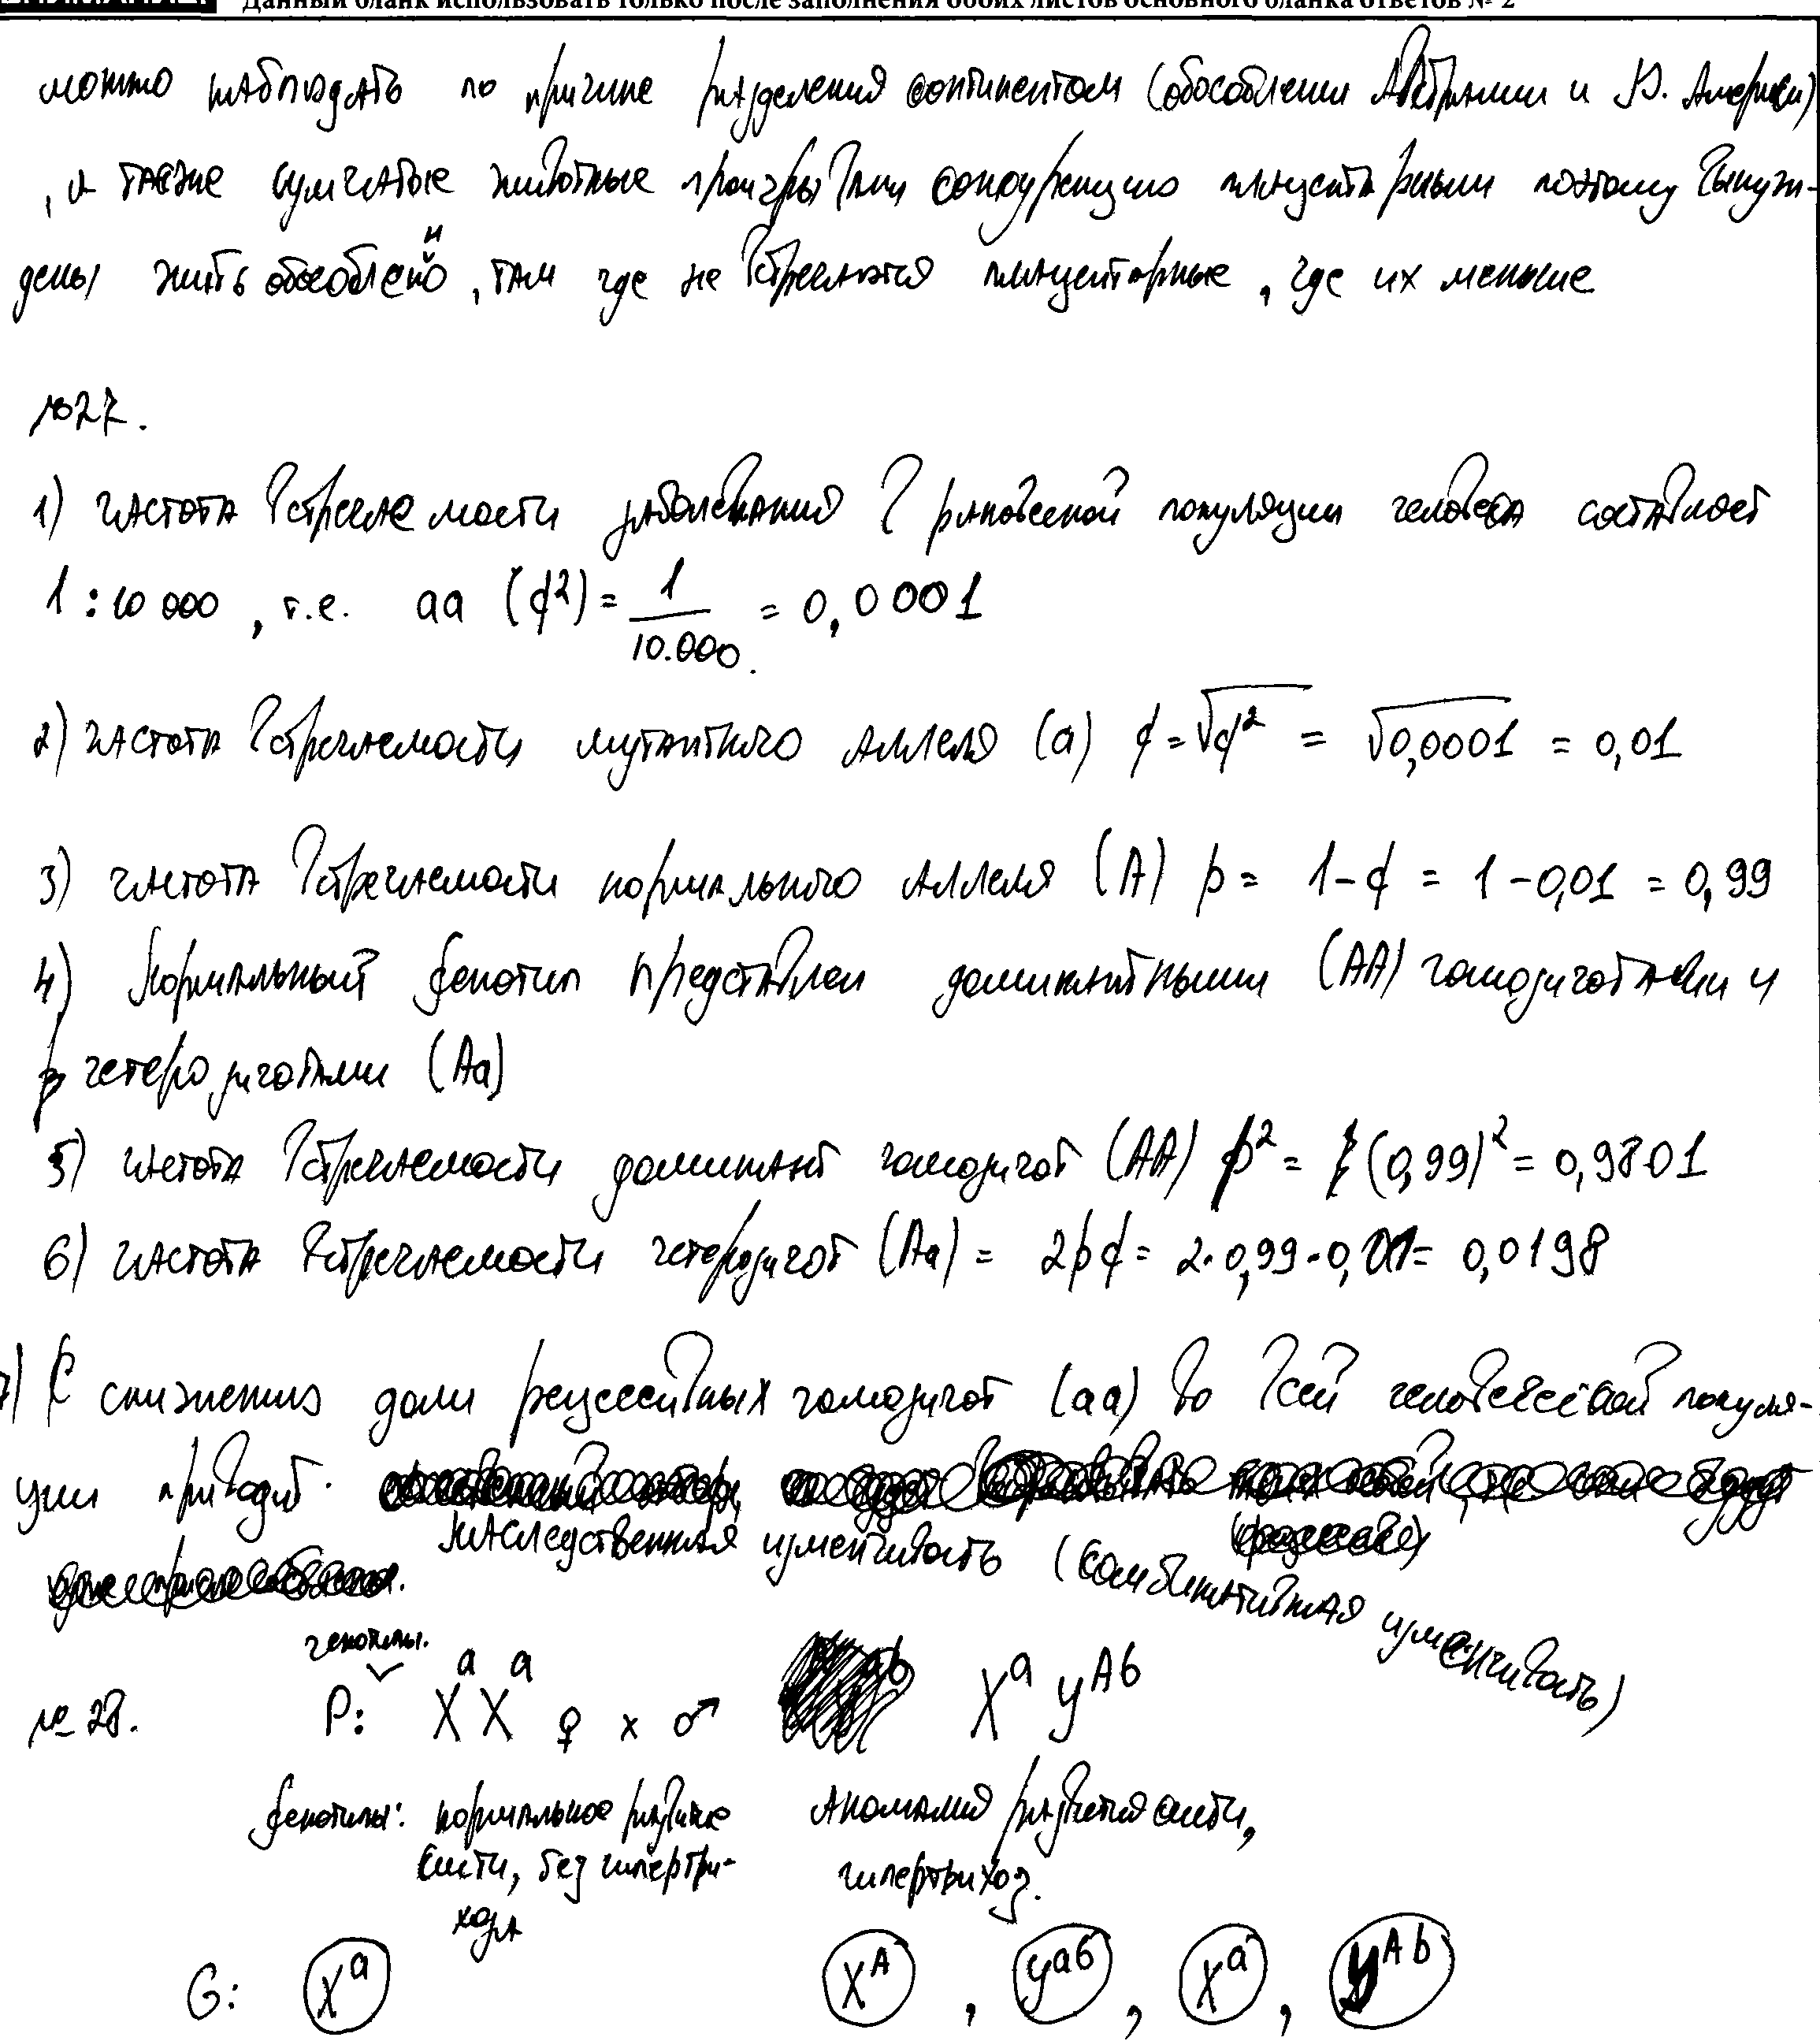 Данный бланк использовать только после заполнения обоих листов основного бланка ответов № 2
можно наблюдать по причине разделения континентом (обособлении Австралии и Ю. Америки)
, а также сумчатые животные проигрывали конкуренцию плацентарным поэтому вынуж-
дены жить обособлено, там где не встречаются плацентарные, где их меньше
н
№27.
1) частота встречаемости заболевания в равновесной популяции человека составляет
1:10 000, т.е. aa (q²) = 1/10.000. = 0,0001
2) частота встречаемости мутантного аллеля (a) q = √q² = √0,0001 = 0,01
3) частота встречаемости нормального аллеля (A) p = 1-q = 1-0,01 = 0,99
4) Нормальный фенотип представлен доминантными (AA) гомозиготами и
гетерозиготами (Aa)
5) частота встречаемости доминант гомозигот (AA) p² = (0,99)² = 0,9801
6) частота встречаемости гетерозигот (Aa) = 2pq = 2·0,99·0,01 = 0,0198
7) К снижению доли рецессивных гомозигот (aa) во всей человеческой популя-
ции приводит
наследственная изменчивость (комбинативная изменчивость)
генотипы.
№ 28. P: X^a X^a ♀ x ♂ X^a y^Ab
фенотипы: нормальное развитие аномалия развития кисти,
кисти, без гипертри- гипертрихоз.
хоза
G: X^a X^A, y^ab, X^a, y^Ab